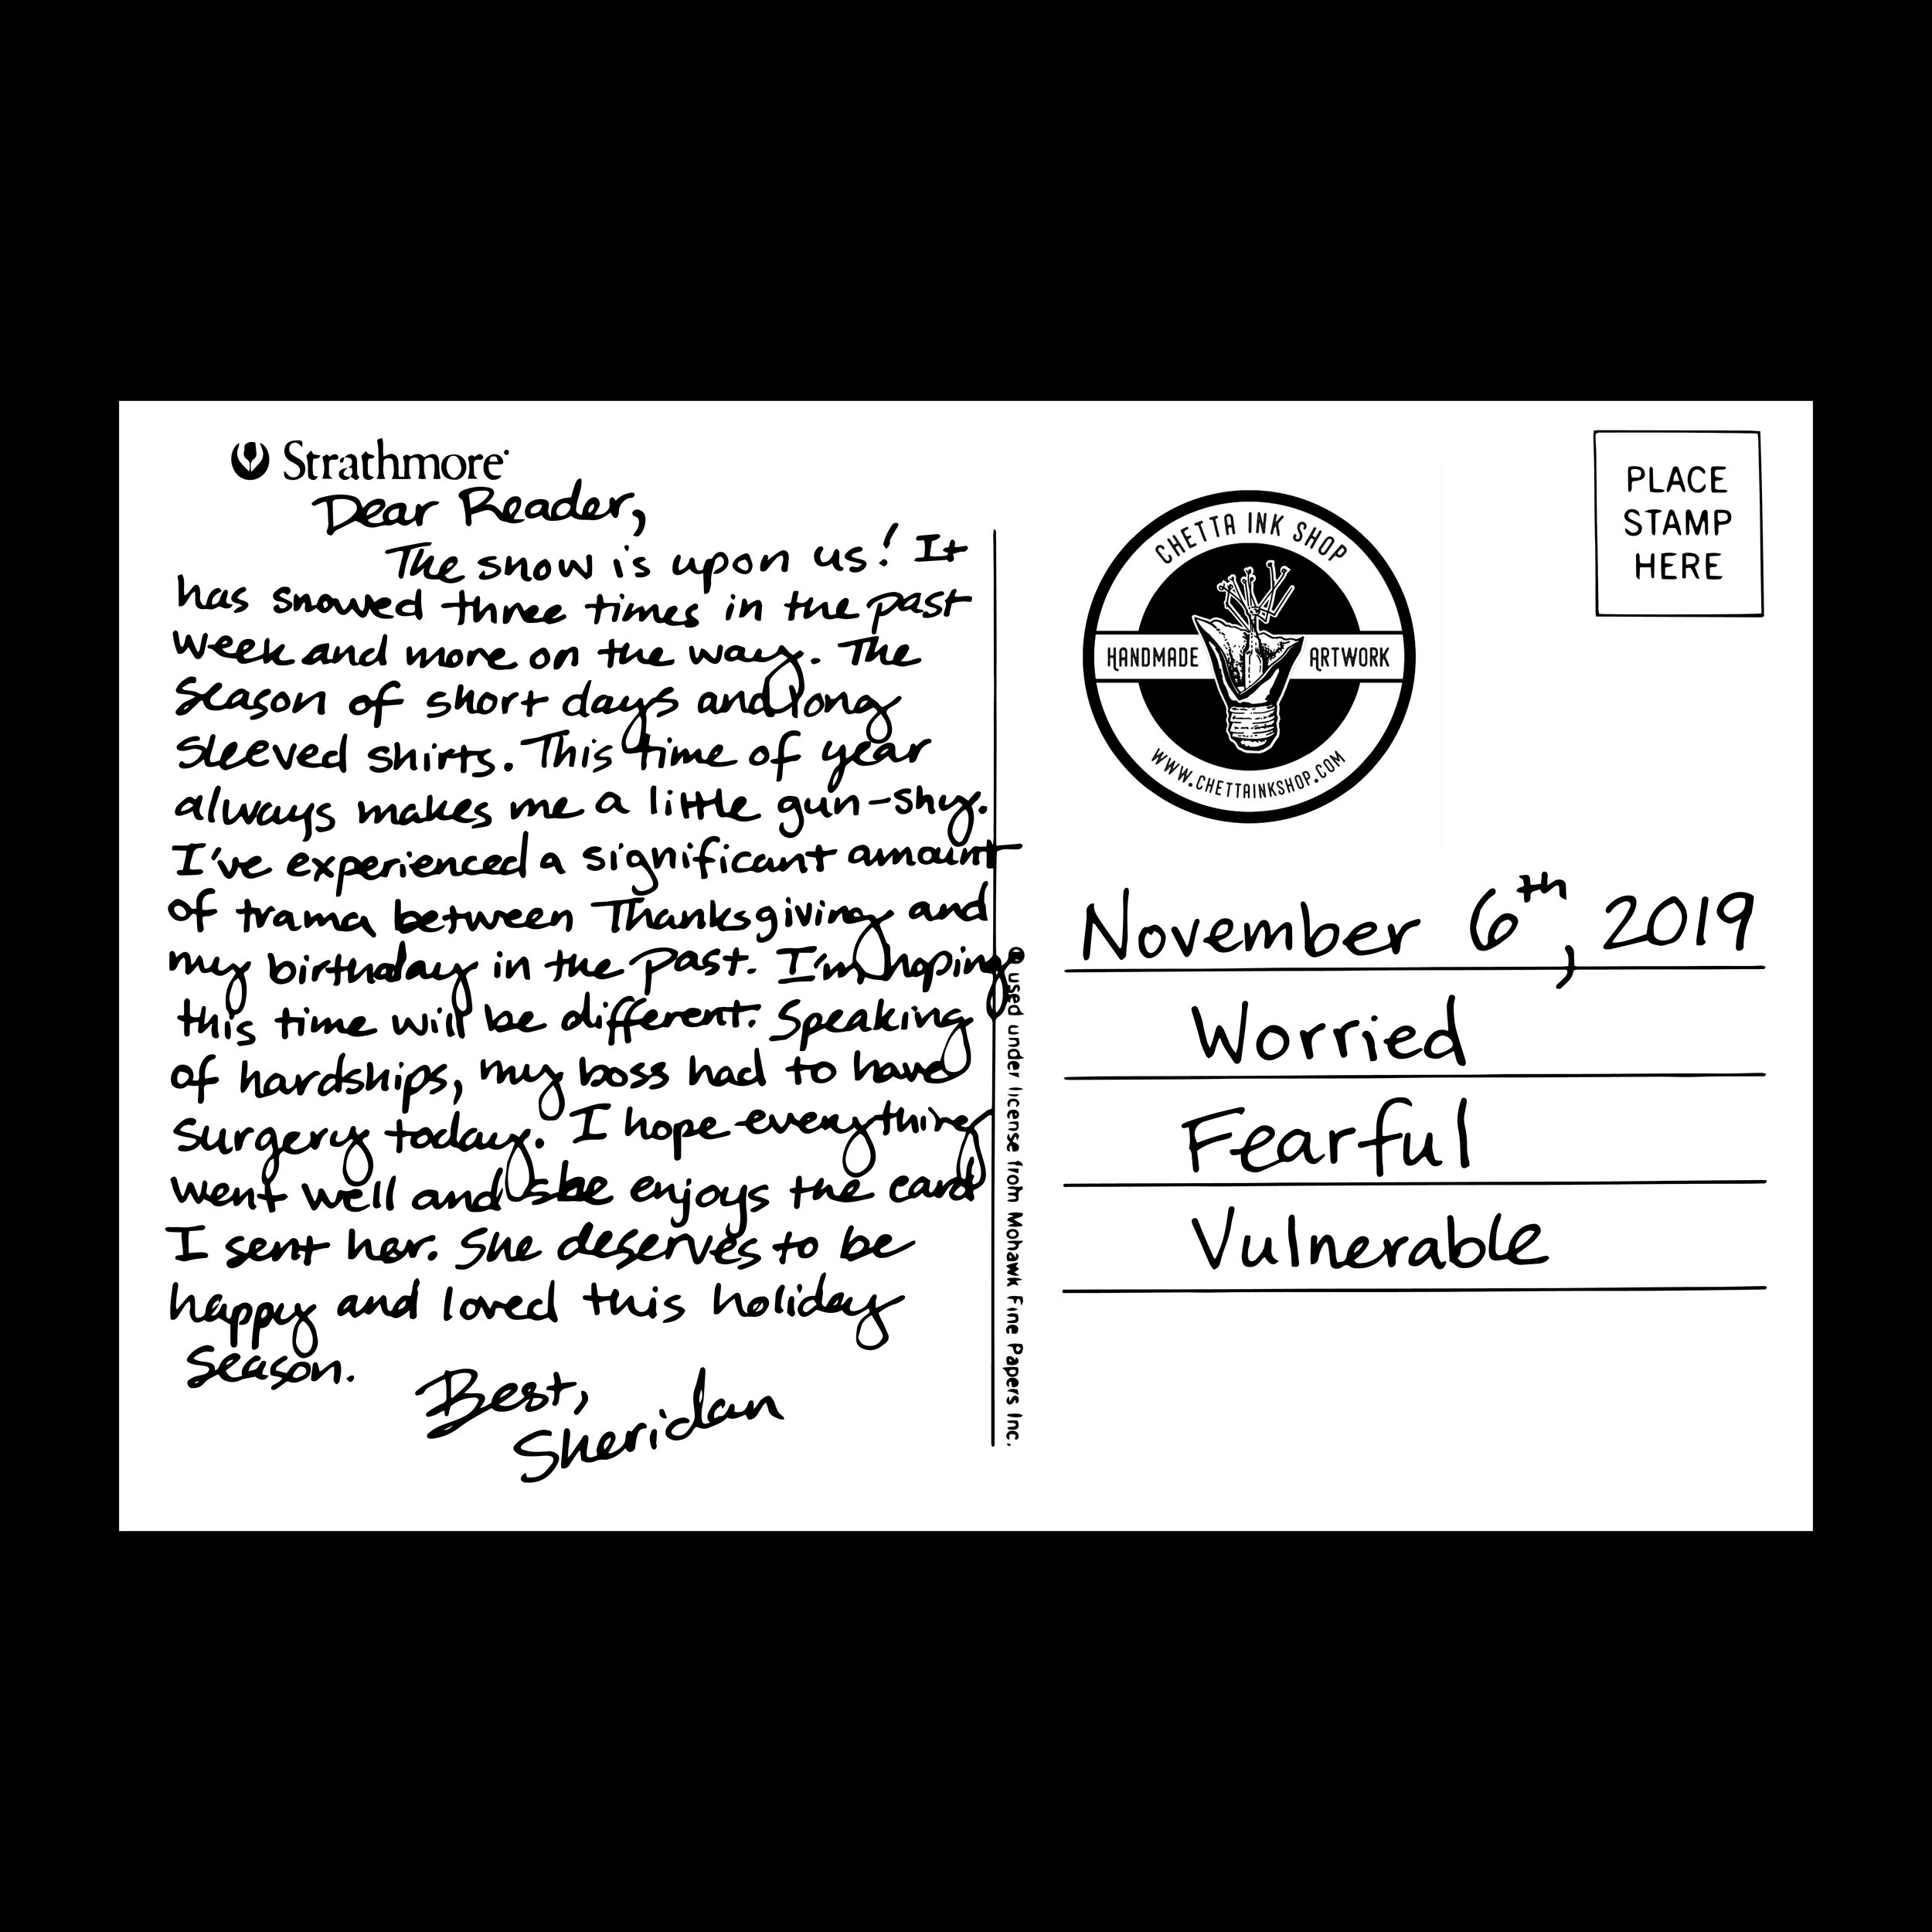 Strathmore
Dear Reader,
The snow is upon us! It
has snowed three times in the past
week and more on the way. The
season of short days and long
sleeved shirts. This time of year
always makes me a little gun-shy.
I've experienced a significant amount
of trama between Thanksgiving and
my birthday in the past. I'm hoping
this time will be different. Speaking
of hardships, my boss had to have
surgery today. I hope everything
went well and she enjoys the card
I sent her. She deserves to be
happy and loved this holiday
season.
Best,
Sheridan
® used under license from Mohawk Fine Papers Inc.
CHETTA INK SHOP
HANDMADE ARTWORK
WWW.CHETTAINKSHOP.COM
PLACE
STAMP
HERE
November 6th, 2019
Worried
Fearful
Vulnerable